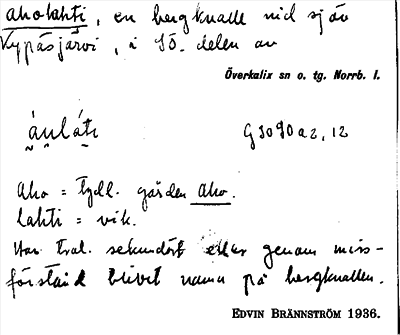 aholahti, en bergknalle vid sjön
Kypäsjärvi, i SO. delen av
Överkalix sn o. tg. Norrb. l.
áu̯láti G3090a2, 12
Aho = tydl. gården Aho.
lahti = vik.
Har trol. sekundärt eller genom miss-
förstånd blivit namn på bergknallen.
EDVIN BRÄNNSTRÖM 1936.